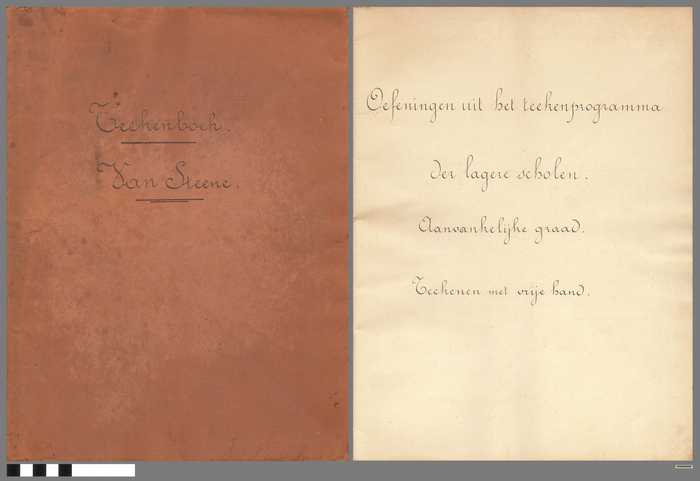 Teekenboek.
Van Steene.
Oefeningen uit het teekenprogramma
der lagere scholen.
Aanvankelijke graad.
Teekenen met vrije hand.